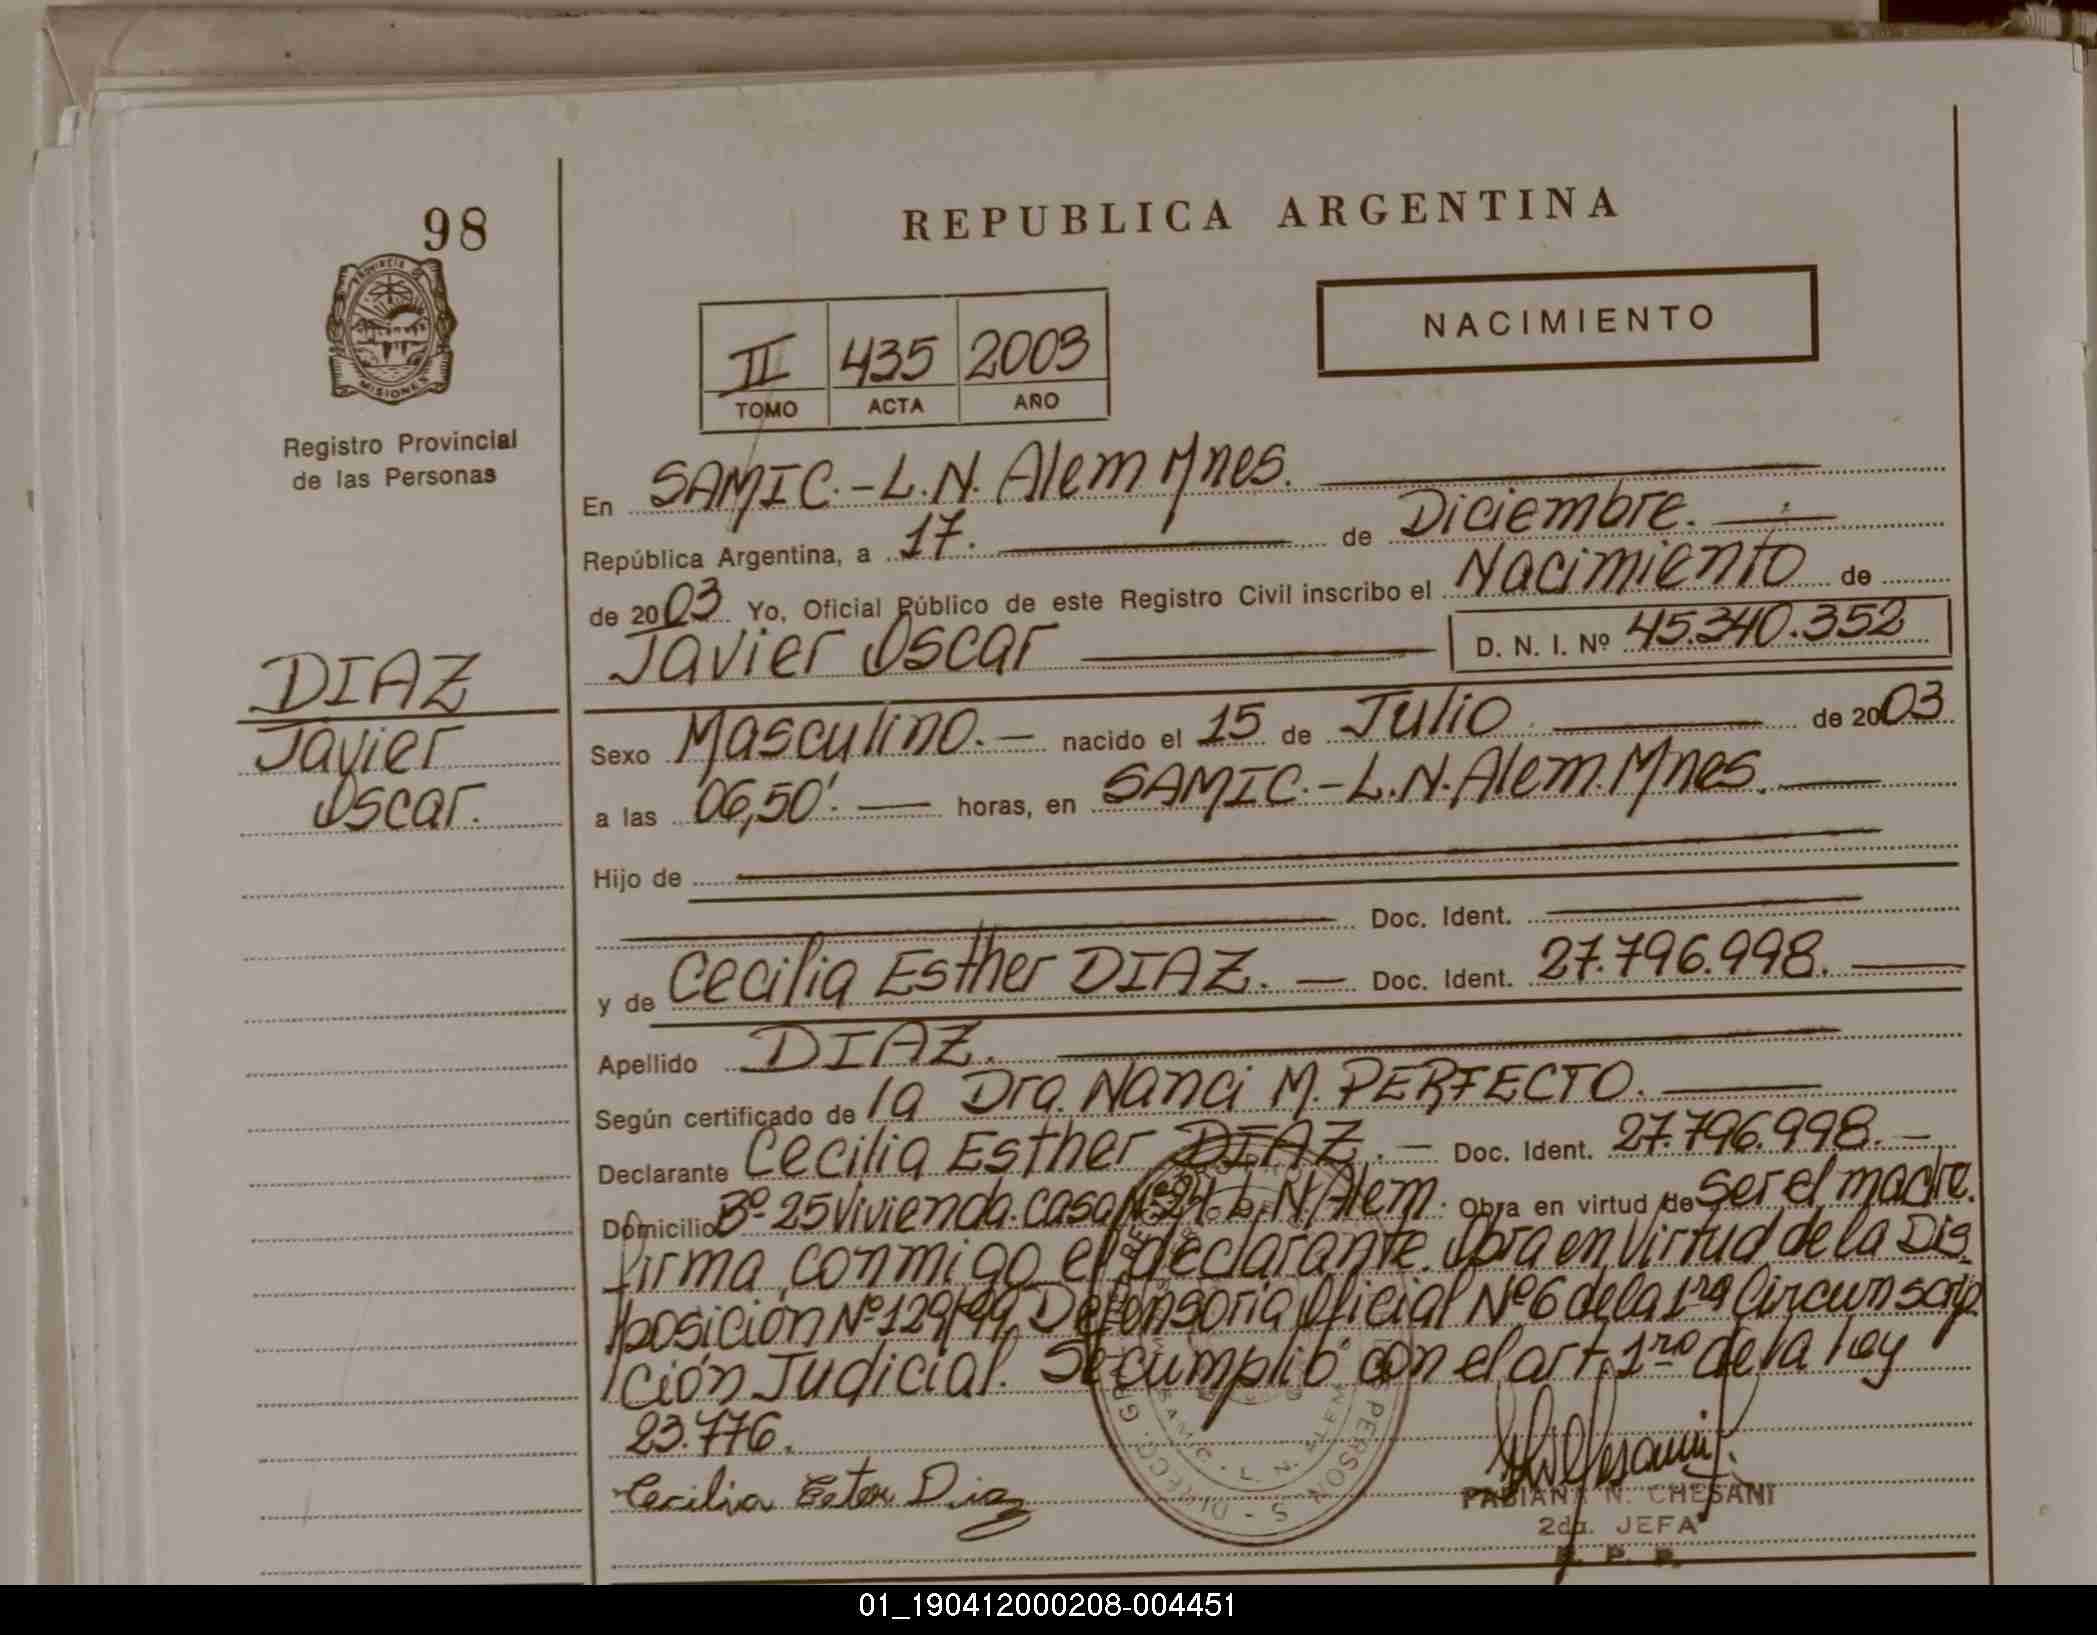 98
REPUBLICA ARGENTINA
PROVINCIA DE
MISIONES
Registro Provincial
de las Personas
NACIMIENTO
II 435 2003
TOMO ACTA AÑO
En SAMIC.-L.N. Alem Mnes.
República Argentina, a 17. de Diciembre.
de 2003 Yo, Oficial Público de este Registro Civil inscribo el Nacimiento de
Javier Oscar D. N. I. Nº 45.340.352
DIAZ
Javier
Oscar.
Sexo Masculino.- nacido el 15 de Julio de 2003
a las 06,50'. horas, en SAMIC.-L.N.Alem.Mnes.
Hijo de
Doc. Ident.
y de Cecilia Esther DIAZ. Doc. Ident. 27.796.998.
Apellido DIAZ.
Según certificado de la Dra. Nanci M. PERFECTO.
Declarante Cecilia Esther DIAZ.- Doc. Ident. 27.796.998.-
Domicilio Bº-25 Vivienda.casa Nº24 L.N.Alem. Obra en virtud de ser el madre.
firma conmigo el declarante. Obra en Virtud de la Dis
posición Nº129/99, Defensoria Oficial Nº6 de la 1ra Circunscrip
ción Judicial. Se cumplió con el art. 1ro de la ley
23.776.
Cecilia Ester Diaz
FABIANA N. CHESANI
2da. JEFA
R. P. P.
01_190412000208-004451